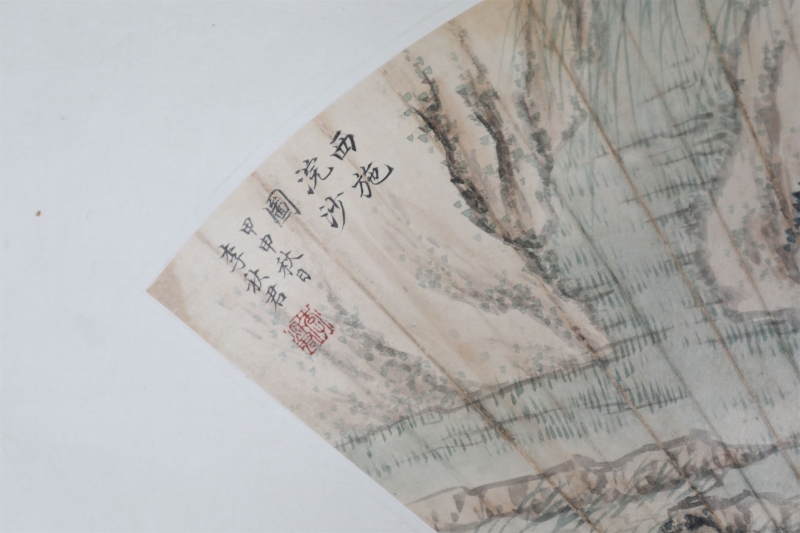 西施
浣沙
圖
甲申秋日
李秋君